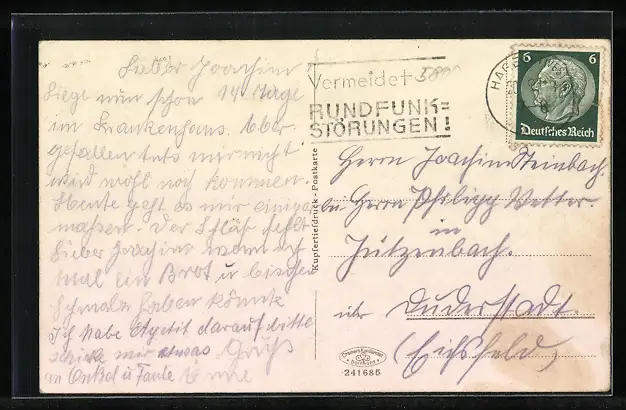 Lieber Joachim
Liege nun schon 14 Tage
im Krankenhaus. Aber
gefallen tuts mir nicht
wird wohl noch kommen.
Heute geht es mir einiger
maßen. Der Schlaf fehlt
Lieber Joachim wenn ich
mal ein Brot u bischen
Schmalz haben könnte
Ich habe Apetit darauf bitte
schicke mir etwas Gruß
an Onkel u Tante
Vermeidet
RUNDFUNK=
STÖRUNGEN!
HAGE
6 6
Deutsches Reich
Herrn Joachim Steinbach.
bei Herrn Philipp Vetter.
in
Jützenbach.
über Duderstadt.
(Eichsfeld)
Kupfertiefdruck - Postkarte
241685